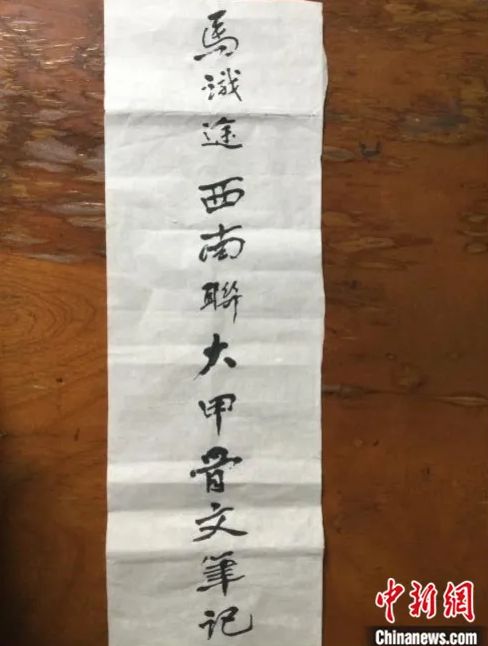 馬識途 西南聯大甲骨文筆记
中新网
Chinanews.com